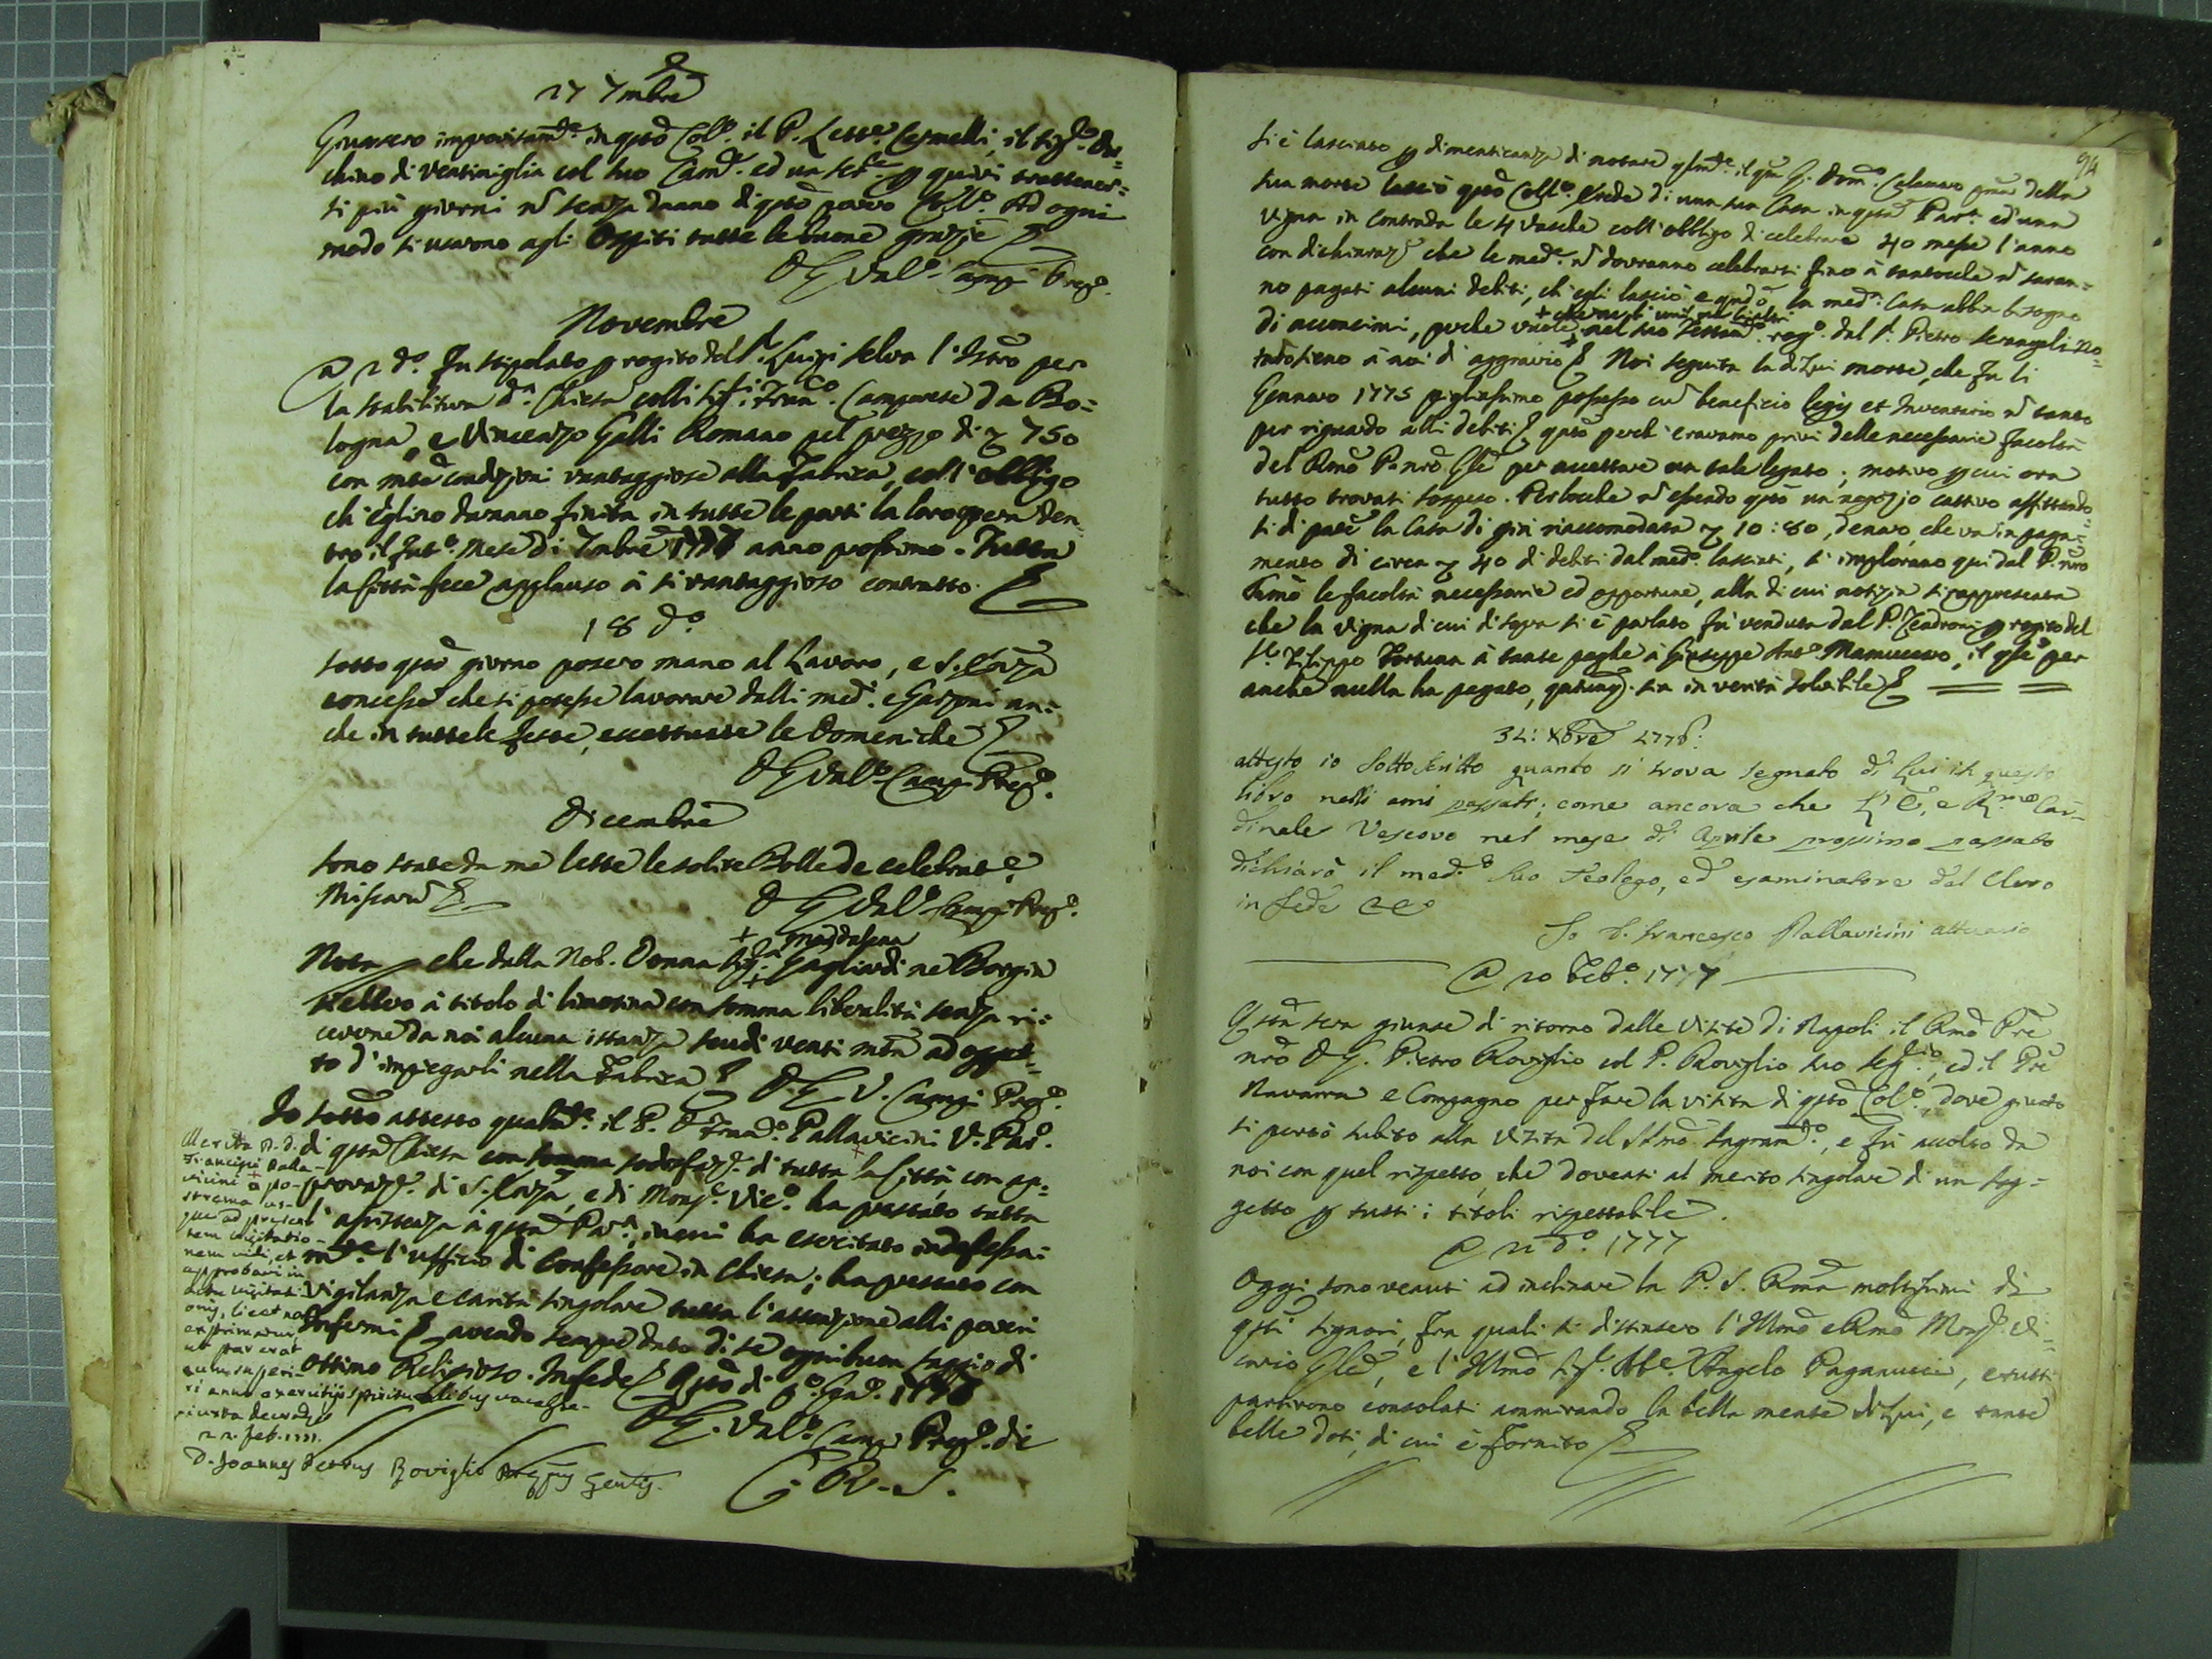 27 7mbre
Giunsero improvisamte. in qsto Colo. il P. Lettre il Sige.
chino di Ventimiglia col suo Came. ed un Serre. p quivi trattener=
si più giorni nō senza danno di qsto povero Collo. Ad ogni
modo si usarono agli Ospiti tutte le buone grazie &
D G Valo. Campi Prepo.
Novembre
a 2 do. Fu stipolato p rogito del Sr. Luigi Selva l'Istro per
la stabilitura da. Chiesa colli Sigi. Franco. Camporese da Bo=
logna, e Vincenzo Galli Romano pel prezzo di 750
con molte condizioni vantaggiose alla Fabrica, coll'obbligo
ch'eglino daranno finita in tutte le parti la loro opera den
tro il futo. Mese di 7mbre anno prossimo. Tutta
la Città fece applauso à si vantaggioso contratto. &
18 do.
Sotto qsto giorno posero mano al Lavoro, e S. Emza
concesse che si potesse lavorare dalli med. e Garzoni an=
che in tutte le Feste, eccettuate le Domeniche &
D G Valo. Campi Prepo.
Dicembre
Sono state da me lette le solite Bolle de celebrate.
Missarū &
D G Valo. Campi Prepo.
+ Maddalena
Nota che dalla Nob. Donna Siga. Gagliardi ne Borgia
si ebbero à titolo di limosina con somma liberalità senza ri=
ceverne da noi alcuna istanza scudi venti mta ad ogget=
to d'impiegarli nella Fabrica & D. G. V. Campi Prepo.
Io sottō attesto qualmte. il P. D Frando. Pallavicini V. Paro.
di qsta Chiesa con somma sodisfaze. di tutta la Città, con ap=
provaze. di S. Emza, e di Monsr. Vico. ha prestato tutta
l'assistenza à qsta Para., in cui ha esercitato indefessa=
mte. l'ufficio di Confessore in Chiesa; ha prestato con
vigilanza e carità singolare tutta l'attenzione alli poveri
Infermi & avendo sempre dato di se ogni buon saggio di
ottimo Religioso. In fede & Qsto dì Geno. 1776
D G. Valo. Campi Prepo. di
C. R. S.
Merita R. D.
Francisci Palla-
vicini a po-
strema us-
que ad presen-
tem visitatio-
nem vidi, et
approbavi in
actu visitati-
onis, licet nō
exprimatur,
ut par erat
eum superi-
ri anno exercitijs spiritualibus vacasse
iuxta decreta
22. Feb. 1777.
D. Joannes Petrus Roviglio Prepus Genlis.
94
Si è lasciato p dimenticanza di notare qlmte. il qm G. Domo. Celauro pma della
sua morte lasciò qsto Collo. Erede di una sua Casa in qsta Para. ed una
vigna in Contrada le 4 Vasche coll'obbligo di celebrare 40 messe l'anno
con dichiaraze che le mede. nō dovranno celebrarsi fino à tantoche nō saran=
no pagati alcuni debiti, ch'egli lasciò e qndō la meda. Casa abbia bisogno
di acconcimi, perche vuole nel suo Testamto. rogo. dal Sr. Pietro Serangeli No=
taro sieno à noi d'aggravio & Noi seguita la di lui morte, che fu li
Gennaro 1775 pigliassimo possesso cū beneficio legis et Inventario nō tanto
per riguardo alli debiti & qsto perch'eravamo privi delle necessarie facoltà
del Rmo P. nro Gle per accettare un tale legato; motivo p cui ora
tutto trovasi sospeso. Perloche nō essendo qsto un negozio cattivo affittando=
si di pnte la Casa di già riaccomodata 10:80, denaro, che va in paga=
mento di circa 40 di debiti dal medo. lasciati, si implorano qui dal P. nro
Rmo le facoltà necessarie ed opportune, alla di cui notizia si rappresenta
che la vigna di cui di sopra si è parlato fu venduta dal P. Zendroni p rogito del
Sr. Filippo Fortuna à tante paghe à Giuseppe Anto. Mamucaro, il qle per
anche nulla ha pagato, qntunq. sia in verità solvibile &
31: Xbre 1776:
attesto io Sotto Scritto quanto si trova segnato di Lui in questo
libro nelli anni passati; come ancora che L'E. e Rmo Car-
dinale Vescovo nel mese di Aprile prossimo passato
dichiarò il medo. Suo Teologo, ed esaminatore del Clero
in fede &c.
Io D. Francesco Pallavicini attuario
a 20 Febo. 1777
Qsta sera giunse di ritorno dalle Visite di Napoli il Rmo Pre
nro D G. Pietro Roviglio col P. Roviglio suo Segrio, ed il Pre
Navarra e Compagno per fare la visita di qsto Colo., dove giunto
si portò subito alla Visita del SSmo Sagramto., e fu accolto da
noi con quel rispetto, che doveasi al merito singolare di un sog=
getto p tutti i titoli rispettabile.
a 21 do. 1777
Oggi sono venuti ad inchinare la P. S. Rma moltissimi di
qsti Signori, fra quali si distinsero l'Illmo e Rmo Monsr. Vi=
cario Gle, e l'Illmo Sigr. Abe. Angelo Paganucci, e tutti
partirono consolati ammirando la bella mente di Lui, e tante
belle doti, di cui è fornito &